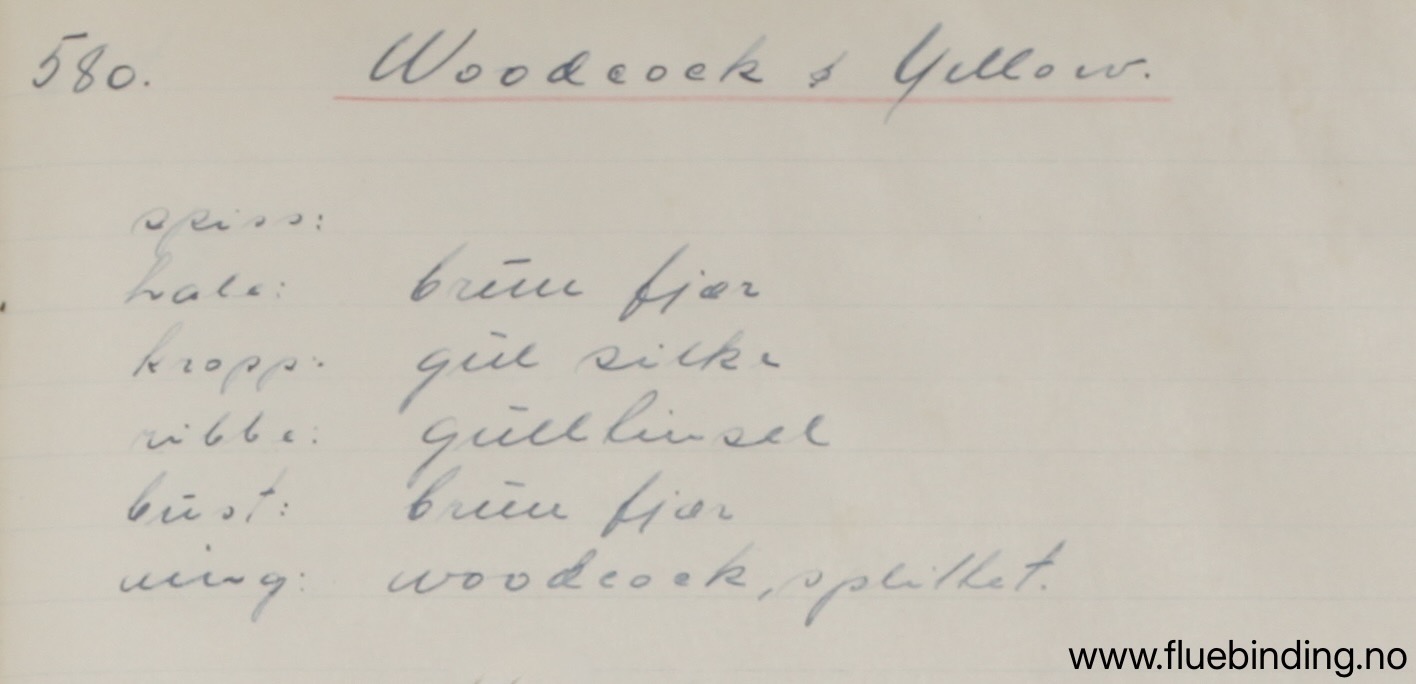 580. Woodcock & Yellow.
spiss:
hale: brun fjær
kropp: gul silke
ribbe: gulltinsel
bust: brun fjær
ving: woodcock, splittet.
www.fluebinding.no